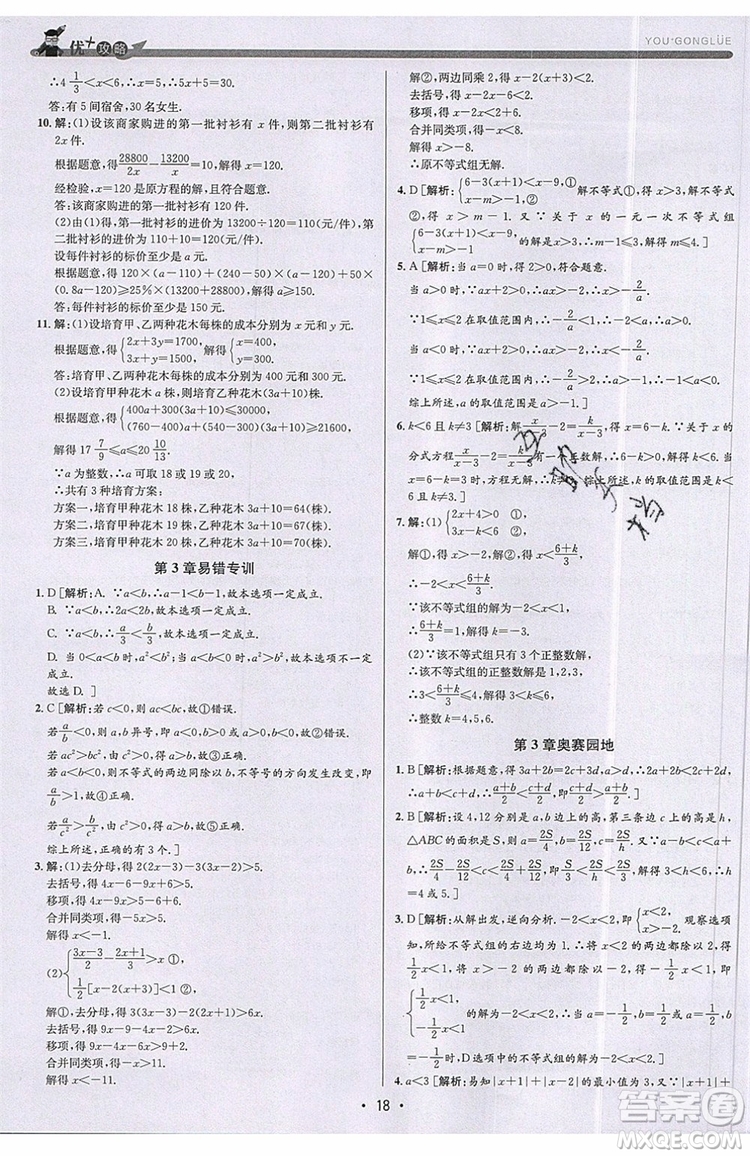 优+攻略
YOU+GONGLÜE
∴4 1/3<x<6,∴x=5,∴5x+5=30.
答:有 5 间宿舍,30 名女生.
10. 解:(1)设该商家购进的第一批衬衫有 x 件,则第二批衬衫有
2x 件.
根据题意,得28800/2x−13200/x=10,解得 x=120,
经检验,x=120 是原方程的解,且符合题意.
答:该商家购进的第一批衬衫有 120 件.
(2)由(1)可得,第一批衬衫的进价为 13200÷120=110(元/件),第二批衬衫的进价为 110+10=120(元/件).
设每件衬衫的标价至少是 a 元.
根据题意,得 120×(a−110)+(240−50)×(a−120)+50×
(0.8a−120)≥25%×(13200+28800),解得 a≥150.
答:每件衬衫的标价至少是 150 元.
11. 解:(1)设培育甲、乙两种花木每株的成本分别为 x 元和 y 元.
根据题意,得{2x+3y=1700, 3x+y=1500,解得{x=400, y=300.
答:培育甲、乙两种花木每株的成本分别为 400 元和 300 元.
(2)设培育甲种花木 a 株,则培育乙种花木(3a+10)株.
根据题意,得{400a+300(3a+10)≤30000, (760−400)a+(540−300)(3a+10)≥21600,
解得 17 7/9≤a≤20 10/13.
∵a 为整数,∴a 可取 18 或 19 或 20,
∴共有 3 种培育方案:
方案一,培育甲种花木 18 株,乙种花木 3a+10=64(株).
方案二,培育甲种花木 19 株,乙种花木 3a+10=67(株).
方案三,培育甲种花木 20 株,乙种花木 3a+10=70(株).
第 3 章易错专训
1. D [解析:A. ∵a<b,∴a−1<b−1,故本选项一定成立.
B. ∵a<b,∴2a<2b,故本选项一定成立.
C. ∵a<b,∴a/3<b/3,故本选项一定成立.
D. 当 a<b<0 时,a²>b²,∴a²<b²不成立,故本选项不一定
成立.
故选 D. ]
2. C [解析:若 c<0,则 ac<bc,故①错误.
若 a/b<0,则 a>0,b<0 或 a<0,b>0,故②正确.
若 ac²>bc²,则 a>b,故③正确.
若 a<b,不等式的两边同除以 b,不等号的方向可能改变,故④错误.
若 a>b>0,不等式的两边同除以 b,则 a/b>1,故⑤正确.
综上所述,正确的有 3 个. ]
3. 解:(1)去分母,得 2(2x−3)−3(3x−2)>5.
去括号,得 4x−6−9x+6>5.
移项,得 4x−9x>5−6+6.
合并同类项,得−5x>5.
解得 x<−1.
(2){(3x−3)/2−(2x+1)/3>x ①, 1/2[x−2(x−3)]<1 ②,
解①,去分母,得 3(3x−3)−2(2x+1)>6x.
去括号,得 9x−9−4x−2>6x.
移项,得 9x−4x−6x>9+2.
合并同类项,得−x>11.
解得 x<−11.
解②,两边同乘 2,得 x−2(x−3)<2.
去括号,得 x−2x+6<2.
移项,得 x−2x<2−6.
合并同类项,得−x<−4.
解得 x>4.
∴原不等式组无解.
4. D [解析:{6−3(x+1)<x−9,① x−m>−1,② 解不等式①,得 x>3,解不等式
②,得 x>m−1. ∵关于 x 的一元一次不等式组
{6−3(x+1)<x−9, x−m>−1 的解是 x>3,∴m−1≤3,∴m≤4. ]
5. A [解析:当 a=0 时,2>0,符合题意.
当 a>0 时,x>−2/a.
∵1≤x≤2 在取值范围内,∴−2/a<1,∴a>0.
当 a<0 时,x<−2/a.
∵1≤x≤2 在取值范围内,∴−2/a>2,∴a>−1.
综上所述,a 的取值范围是 a>−1. ]
6. k<6 且 k≠3 [解析:解x/(x−3)−2=k/(x−3),得 x=6−k. ∵关于 x 的
分式方程x/(x−3)−2=k/(x−3)有一个正数解,∴x=6−k>0,∴k<6. 当
x=6−k=3 时,方程无解,∴k≠3. 综上所述,k 的取值范围是 k<
6 且 k≠3. ]
7. 解:(1){2x+4>0①, 3x−k<6②.
解①,得 x>−2,
解②,得 x<(6+k)/3,∴−2<x<(6+k)/3.
∵该不等式组的解为−2<x<1,
∴(6+k)/3=1,∴k=−3.
(2)∵该不等式组只有 3 个正整数解,
∴该不等式组只有正整数解 1,2,3,
∴3<(6+k)/3≤4,∴3<k≤6,
∴整数 k=4,5,6.
第 3 章奥赛园地
1. B [解析:根据题意,得 3a+2b=2c+3d,∴2a+2b<2c+2d,
∴a+b<c+d,∴(a+b)/2<(c+d)/2,即(a+b)/2<(c+d)/2. ]
2. B [解析:设 4,12 分别是 a,b 边上的高,第三条边 c 上的高是 h,
△ABC 的面积是 S,则 a=2S/4,b=2S/12,c=2S/h. 又∵a−b<c<a
+b,∴2S/4−2S/12<2S/h<2S/4+2S/12,解得 3<h<6,∴h=4 或
h=5. ]
3. D [解析:从解出发,逆向变换. 由−1/2<x<2,得{x<2, x>−1/2. 观察选项可
知,所给不等式组的右边均为 1. ∴将 x<2 两边同除以 2,将 x>−1/2
两边同乘−2,得{1/2x<1, −2x<1. 故当 a=−2,b=1/2 时,
{ax<1, bx<1 的解为−1/2<x<2. 当 a=−1/2,b=2 或 a=−2,b=−1/2
时,D 选项中的不等式组的解为−1/2<x<2. ]
4. a<3 [解析:易知|x+1|+|x−2|的最小值为 3,又∵|x+1|+
· 18 ·
答案卷
MXQE.COM